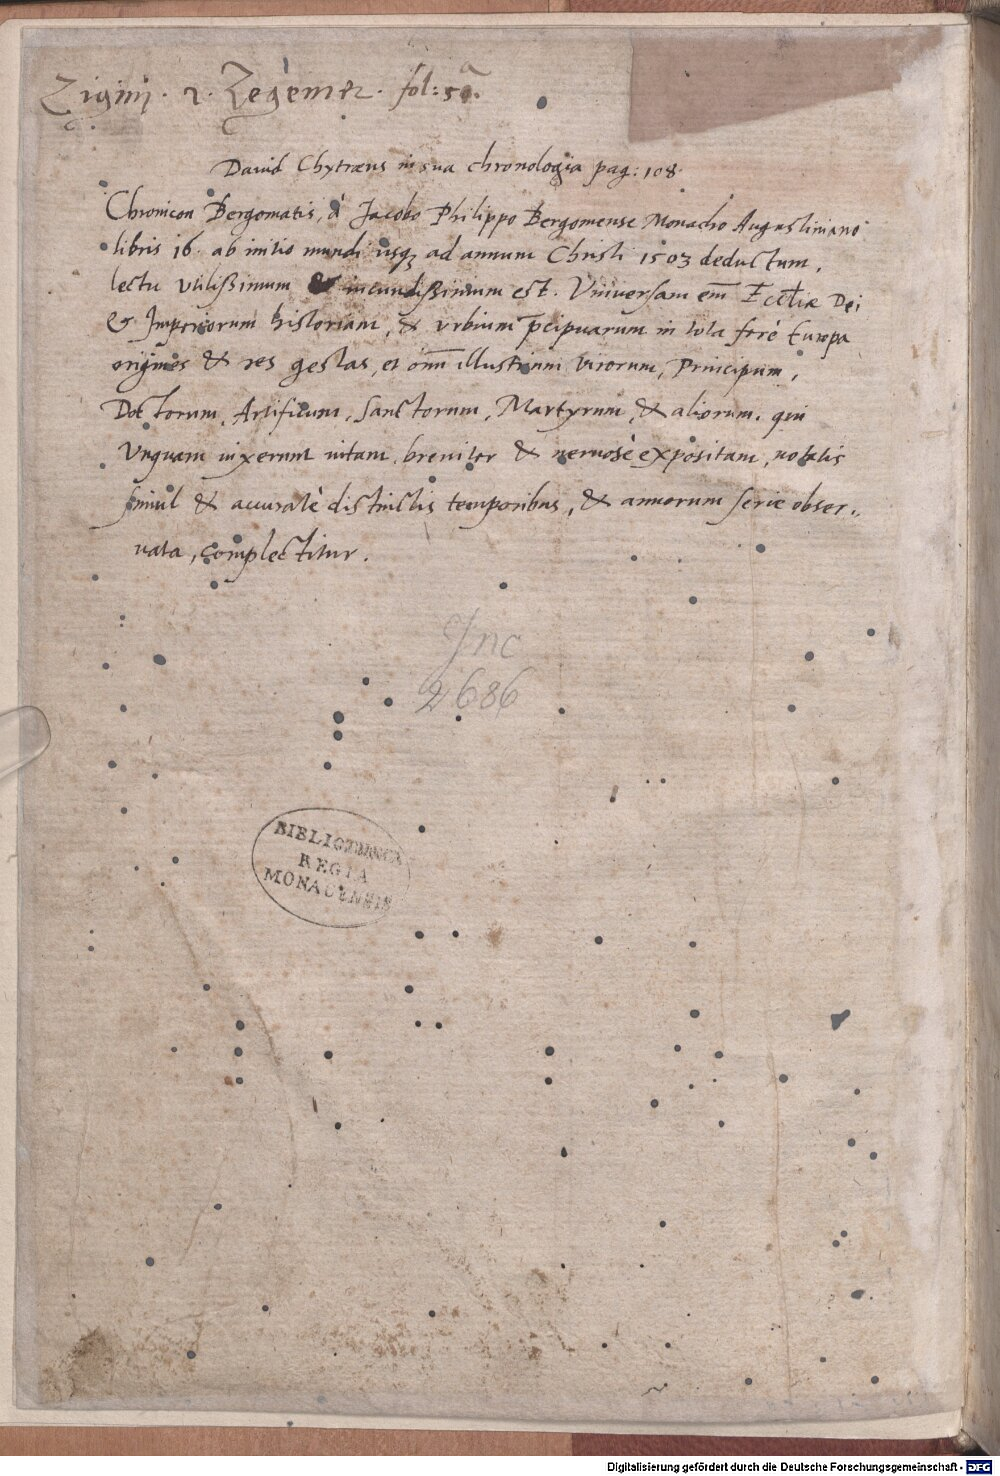 fol: 5a.
David Chytræus in sua chronologia pag: 108.
Chronicon Bergomatis, à Jacobo Philippo Bergomense Monacho Augustiniano
libris 16. ab initio mundi usq; ad annum Christi 1503 deductum,
lectu utilißimum & iucundißimum est. Universam em̄ Eccłiæ Dei
& Imperiorum historiam, & urbium p̄cipuarum in tota ferè Europa
origines & res gestas, et om̄ illustrium virorum, Principum,
Doctorum, Artificum, Sanctorum, Martyrum, & aliorum, qui
unquam vixerunt vitam, breviter & nervosè expositam, notatis
simul & accuratè distinctis temporibus, & annorum serie obser„
vata, complectitur.
Inc
2686
BIBLIOTHECA
REGIA
MONACENSIS
Digitalisierung gefördert durch die Deutsche Forschungsgemeinschaft - DFG